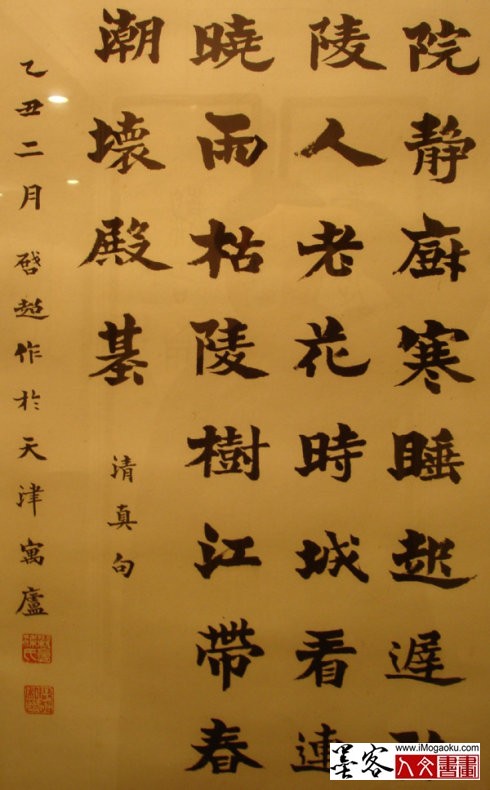 院静廚寒睡起遲
陵人老花時城看連
曉雨枯陵樹江帶春
潮壞殿基
清真句
乙丑二月啓超作於天津寓廬
墨客
www.iMogaoku.com
人文書畫